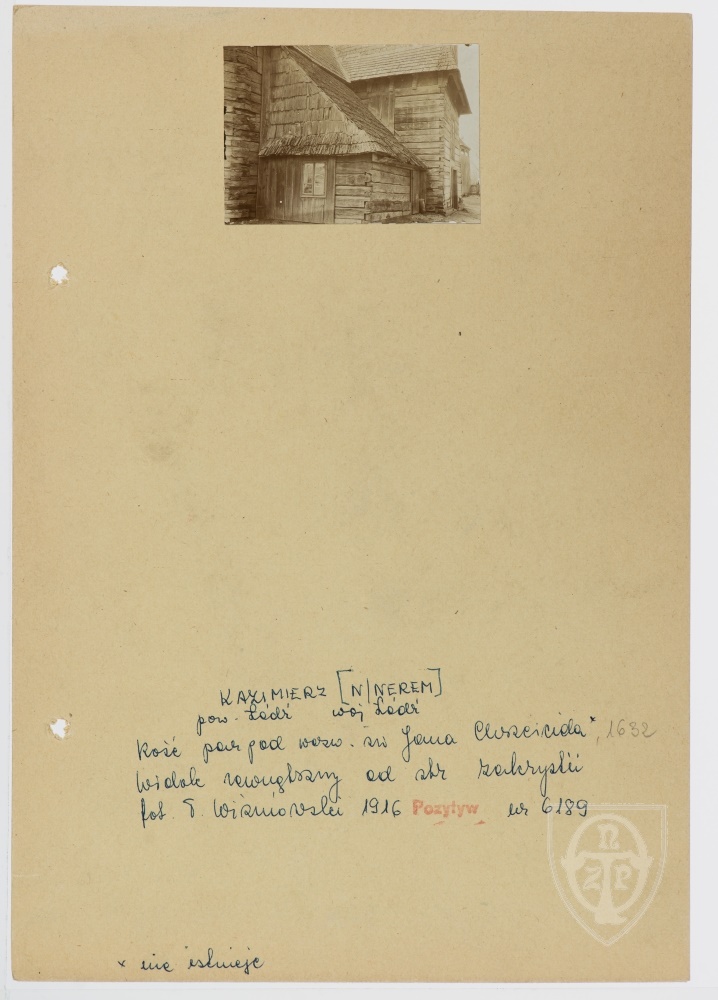 KAZIMIERZ [N/NEREM]
pow. Łódź woj Łódź
Kość par pod wezw. św Jana Chrzciciela*, 1632
Widok zewnętrzny od str zakrystii
fot. T. Wiśniowski 1916 Pozytyw nr 6189
TNOZP
x nie istnieje